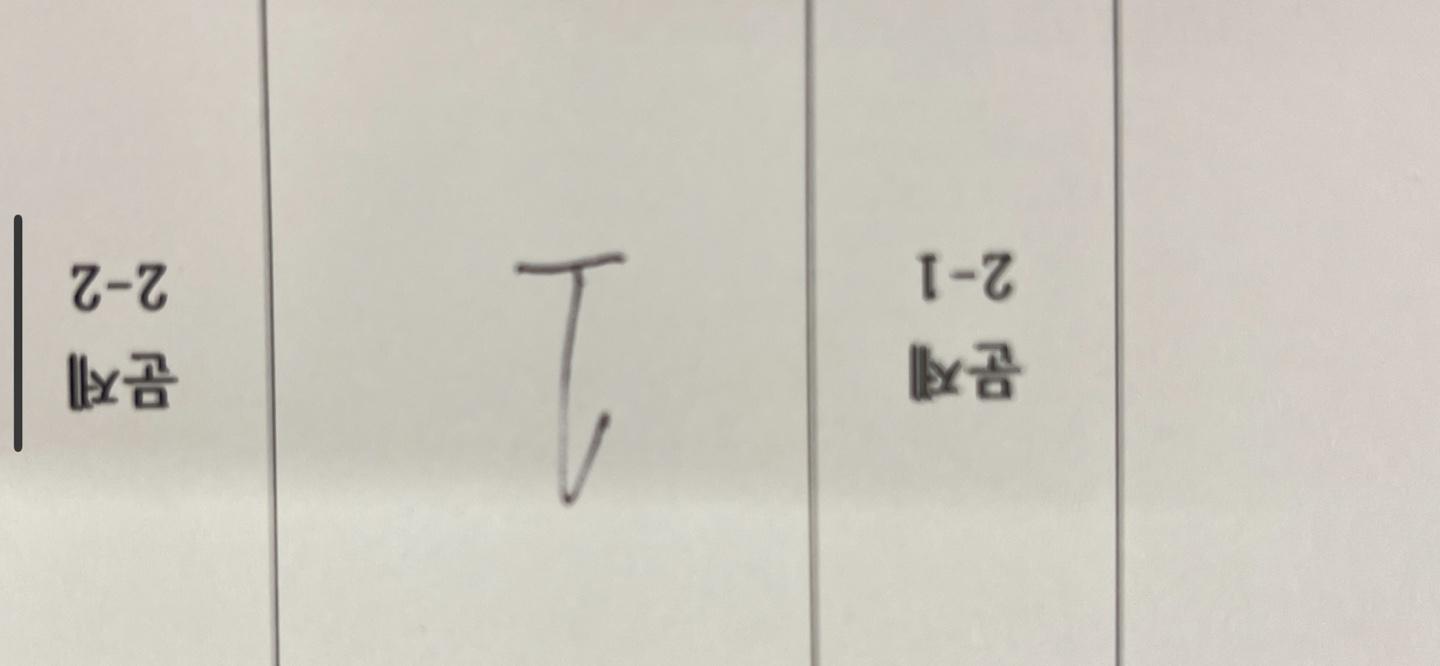 문제
2-1
1
문제
2-2